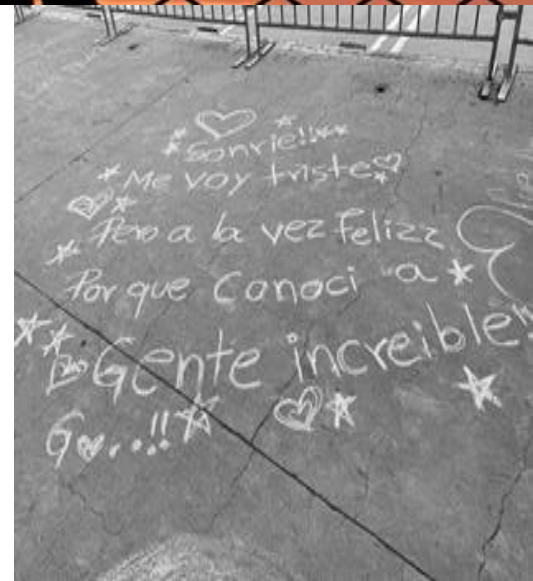 Sonrie!!
Me voy triste
Pero a la vez Felizz
Por que Conoci a
Gente increible!!